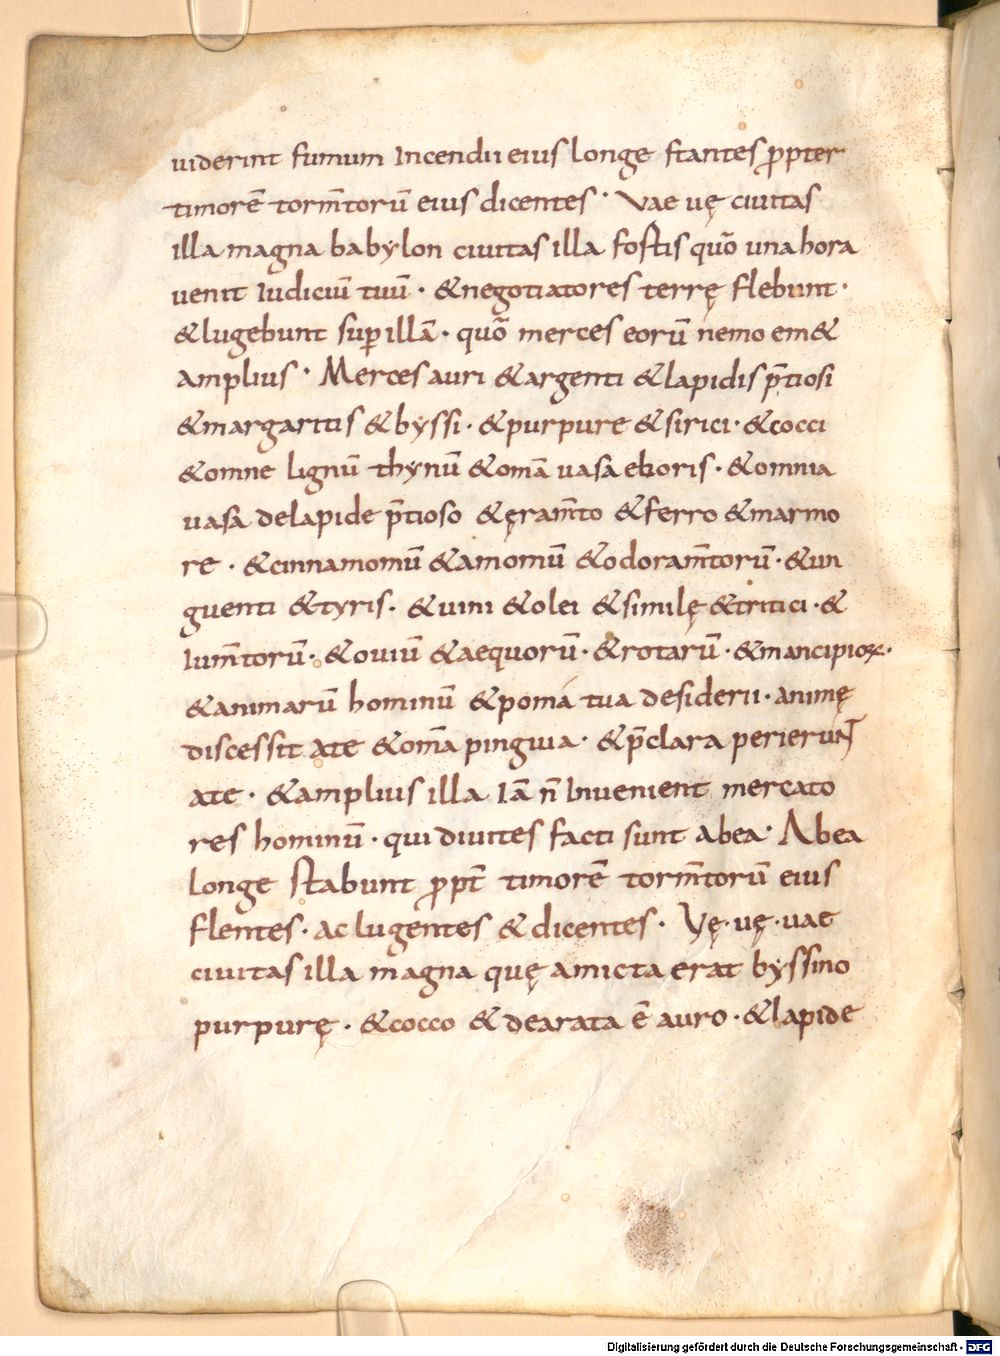 uiderint fumum Incendii eius longe stantes ꝓpter
timorē torm̄torū eius dicentes · Vae uę ciuitas
illa magna babylon ciuitas illa fostis quō una hora
uenit Iudiciū tuū · & negotiatores terrę flebunt ·
& lugebunt suꝑ illā · quō merces eorū nemo em&
amplius · Merces auri & argenti & lapidis p̄tiosi
& margaritis & byssi · & purpure & sirici · & cocci
& omne lignū thynū & om̄a uasa eboris · & omnia
uasa de lapide p̄tioso & ęram̄to & ferro & marmo
re · & cinnamomū & amomū & odoram̄torū · & un
guenti & tyris · & uini & olei & similę & tritici · &
Ium̄torū · & ouiū & aequorū · & rotarū · & mancipioꝝ ·
& animarū hominū & poma tua desiderii · animę
discessit ate & om̄a pinguia · & p̄clara perierunt
ate · & amplius illa Iā n̄ Inuenient mercato
res hominū · qui diuites facti sunt abea · Abea
longe stabunt ꝓpt̄ timorē torm̄torū eius
flentes · ac lugentes & dicentes · Vę · uę · uae
ciuitas illa magna quę amicta erat byssino
purpurę · & cocco & dearata ē auro · & lapide
Digitalisierung gefördert durch die Deutsche Forschungsgemeinschaft - DFG